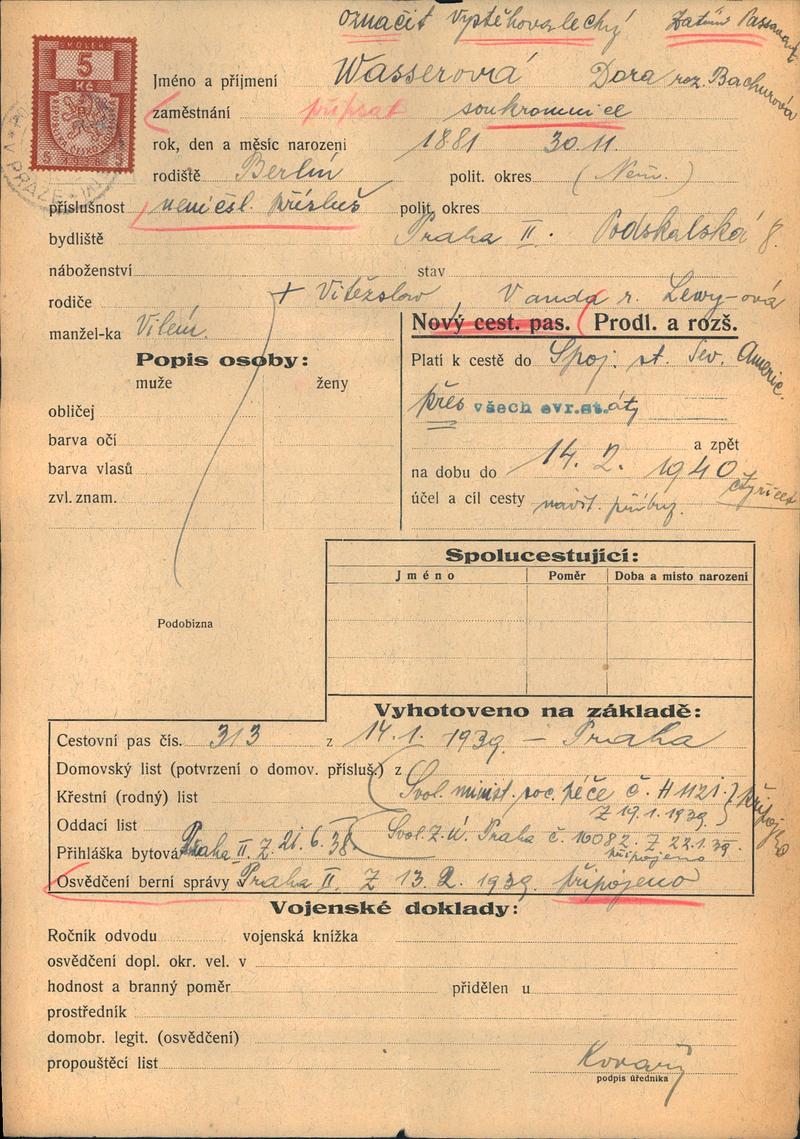 označit vystěhovalecký! Zatím Passavant
KOLEK
5
Kč
Jméno a příjmení Wasserová Dora roz. Bachurová
zaměstnání připsat soukromnice
rok, den a měsíc narození 1881 30.11.
rodiště Berlín polit. okres (Něm.)
příslušnost není čsl. přísluš polit. okres
bydliště Praha II. Podskalská 8.
náboženství stav
rodiče + Vítězslav, Vanda r. Lewy-ová
manžel-ka Vilém.
Nový cest. pas. Prodl. a rozš.
Popis osoby:
muže ženy
Platí k cestě do Spoj. st. Sev. Americ.
obličej
přes všech evr.st.áty
barva očí
a zpět
barva vlasů
na dobu do 14. 2. 1940 čtyřicet
zvl. znam.
účel a cíl cesty návšt. příbuz.
Spolucestující:
Jméno Poměr Doba a místo narození
Podobizna
Vyhotoveno na základě:
Cestovní pas čís. 313 z 14.1. 1939 – Praha
Domovský list (potvrzení o domov. přísluš.) z
Křestní (rodný) list Svol. minist. soc. péče č. H 1121
Z 19.1.1939
Oddací list Svol. Z. Ú. Praha č. 16082. Z 22.1.39.
Přihláška bytová Praha II. Z 21.6.38 připojeno
Osvědčení berní správy Praha II. Z 13.2.1939. připojeno
Vojenské doklady:
Ročník odvodu vojenská knížka
osvědčení dopl. okr. vel. v
hodnost a branný poměr přidělen u
prostředník
domobr. legit. (osvědčení)
propouštěcí list
Kovařy
podpis úředníka